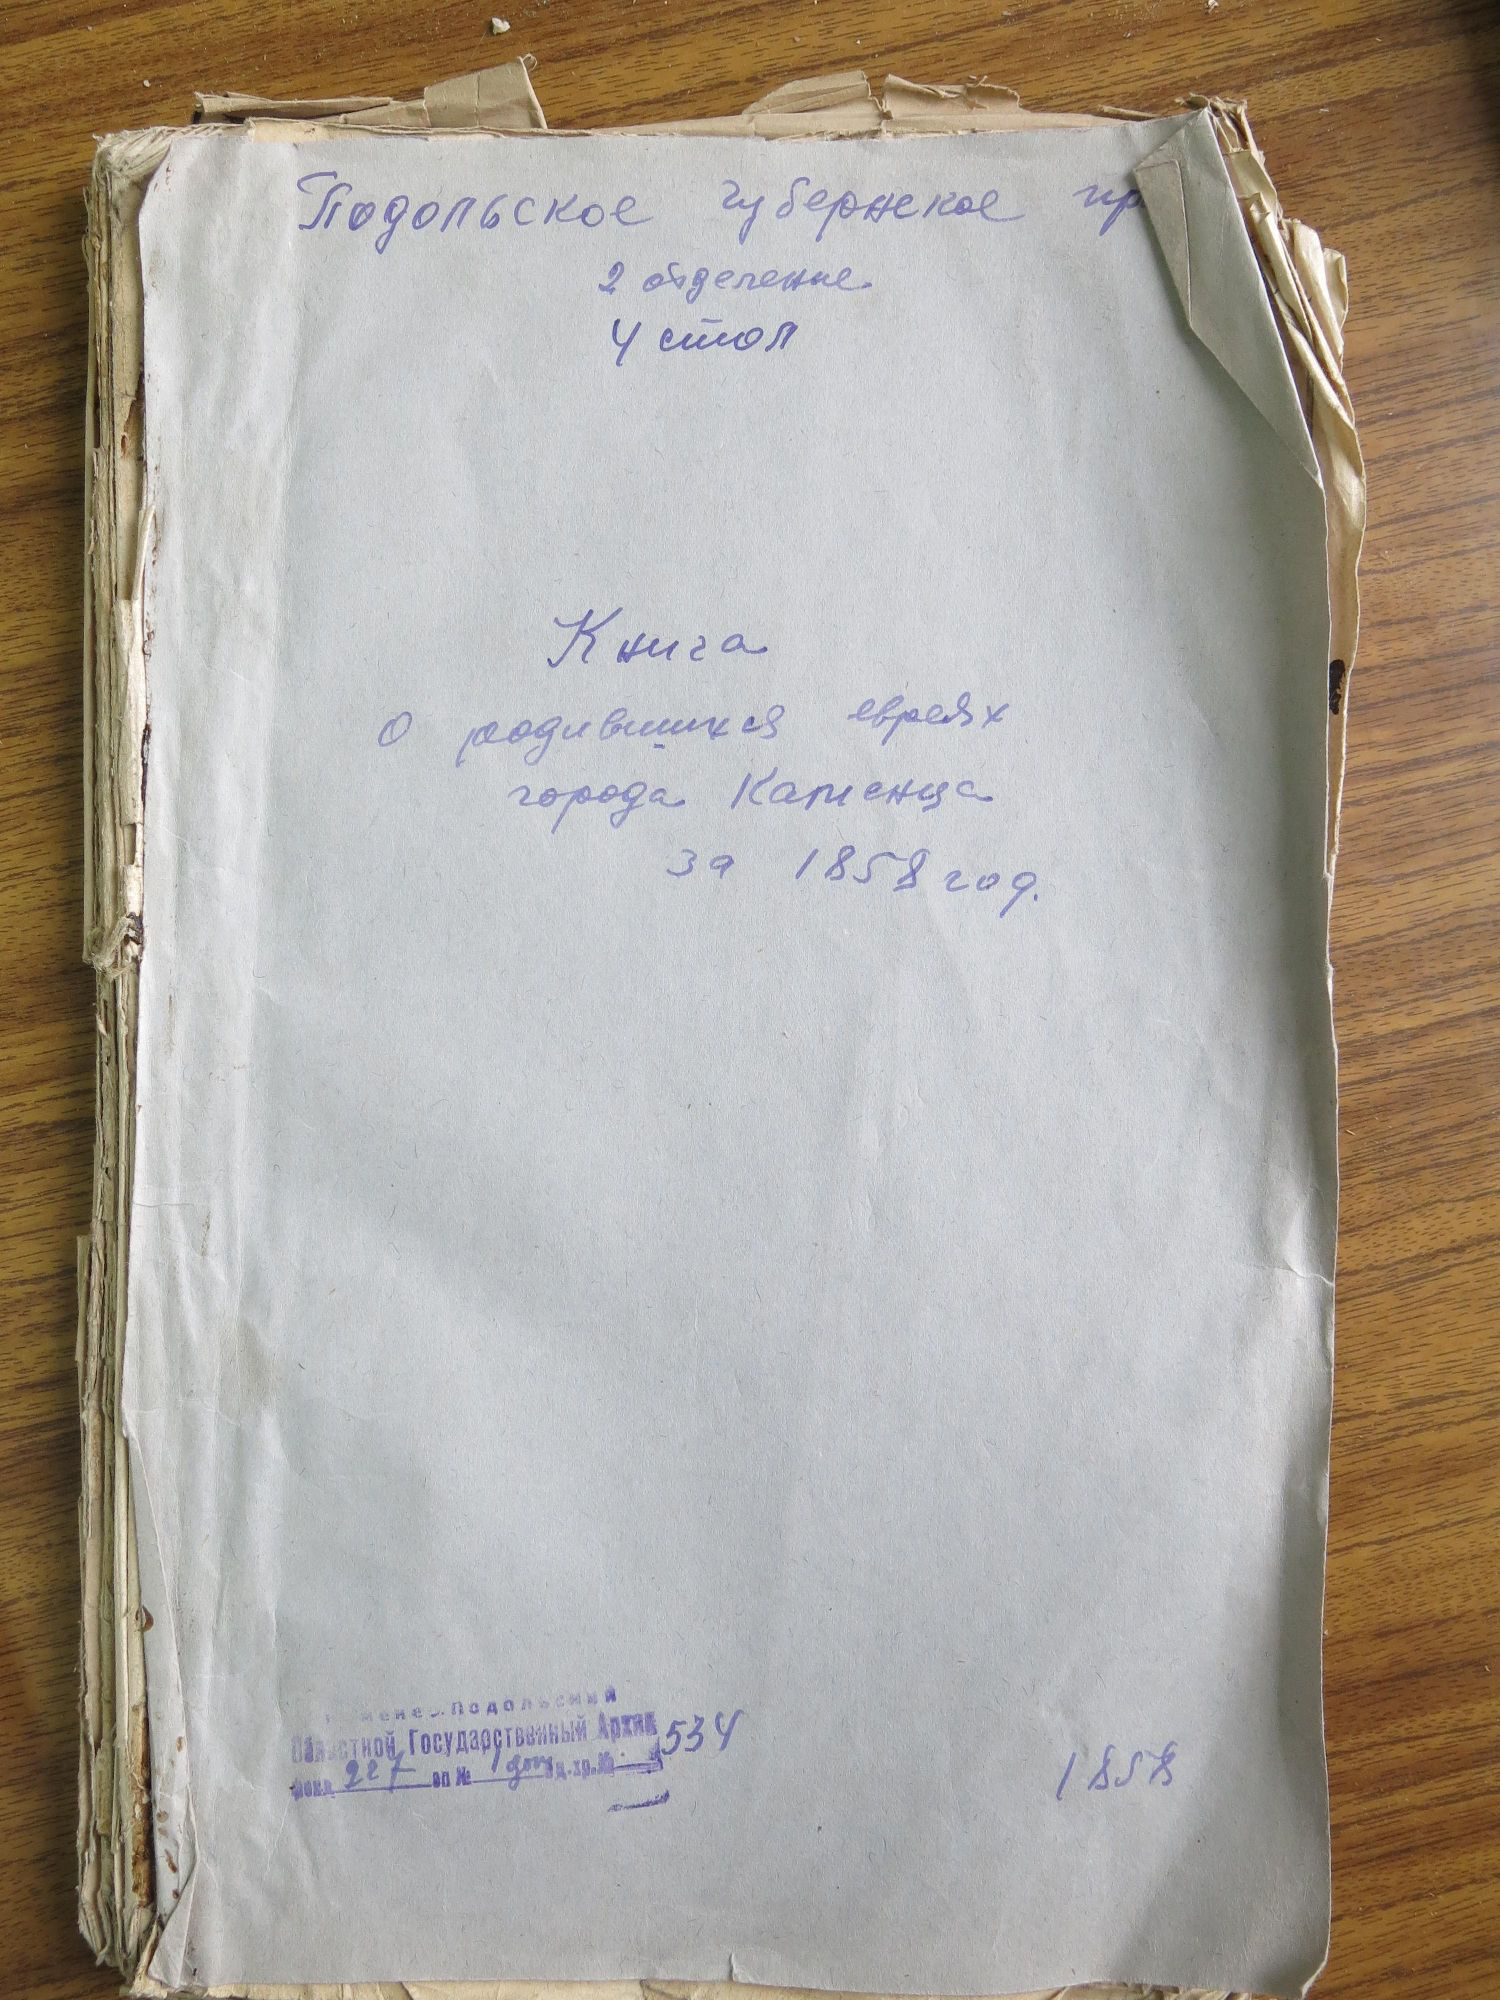 Подольское губернское пр
2 отделение
4 стол
Книга
О родившихся евреях
города Каменца
за 1858 год.
Каменец-Подольский
Областной Государственный Архив
Фонд 227 оп № 1 доп Ед.хр.№ 534
1858